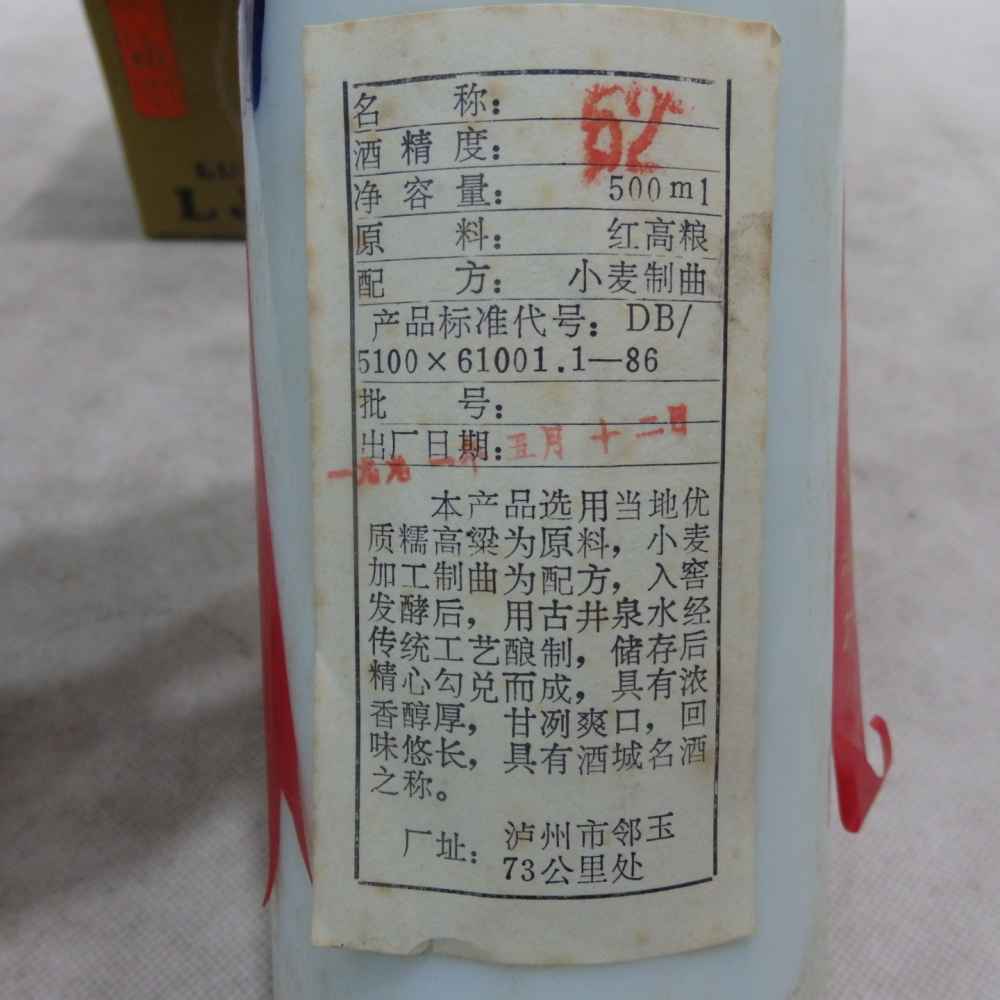 名 称：
酒精度： 62
净容量： 500ml
原 料： 红高粮
配 方： 小麦制曲
产品标准代号：DB/
5100×61001.1—86
批 号：
出厂日期：
一九九一年五月十二日
本产品选用当地优
质糯高粱为原料，小麦
加工制曲为配方，入窖
发酵后，用古井泉水经
传统工艺酿制，储存后
精心勾兑而成，具有浓
香醇厚，甘冽爽口，回
味悠长，具有酒城名酒
之称。
厂址：泸州市邻玉
73公里处